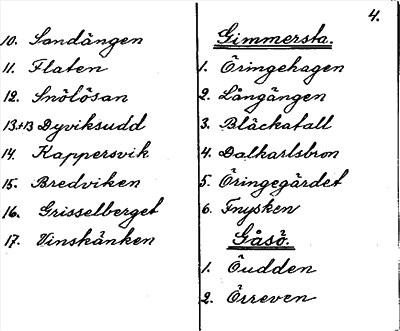 4.
10. Sandängen
11. Flaten
12. Snölösan
13+13 Dyviksudd
14. Kappersvik
15. Bredviken
16. Grisselberget
17. Vinskänken
Gimmersta.
1. Öringehagen
2. Långängen
3. Bläckafall
4. Dalkarlsbron
5. Öringegärdet
6. Fnysken
Gåsö.
1. Öudden
2. Örreven